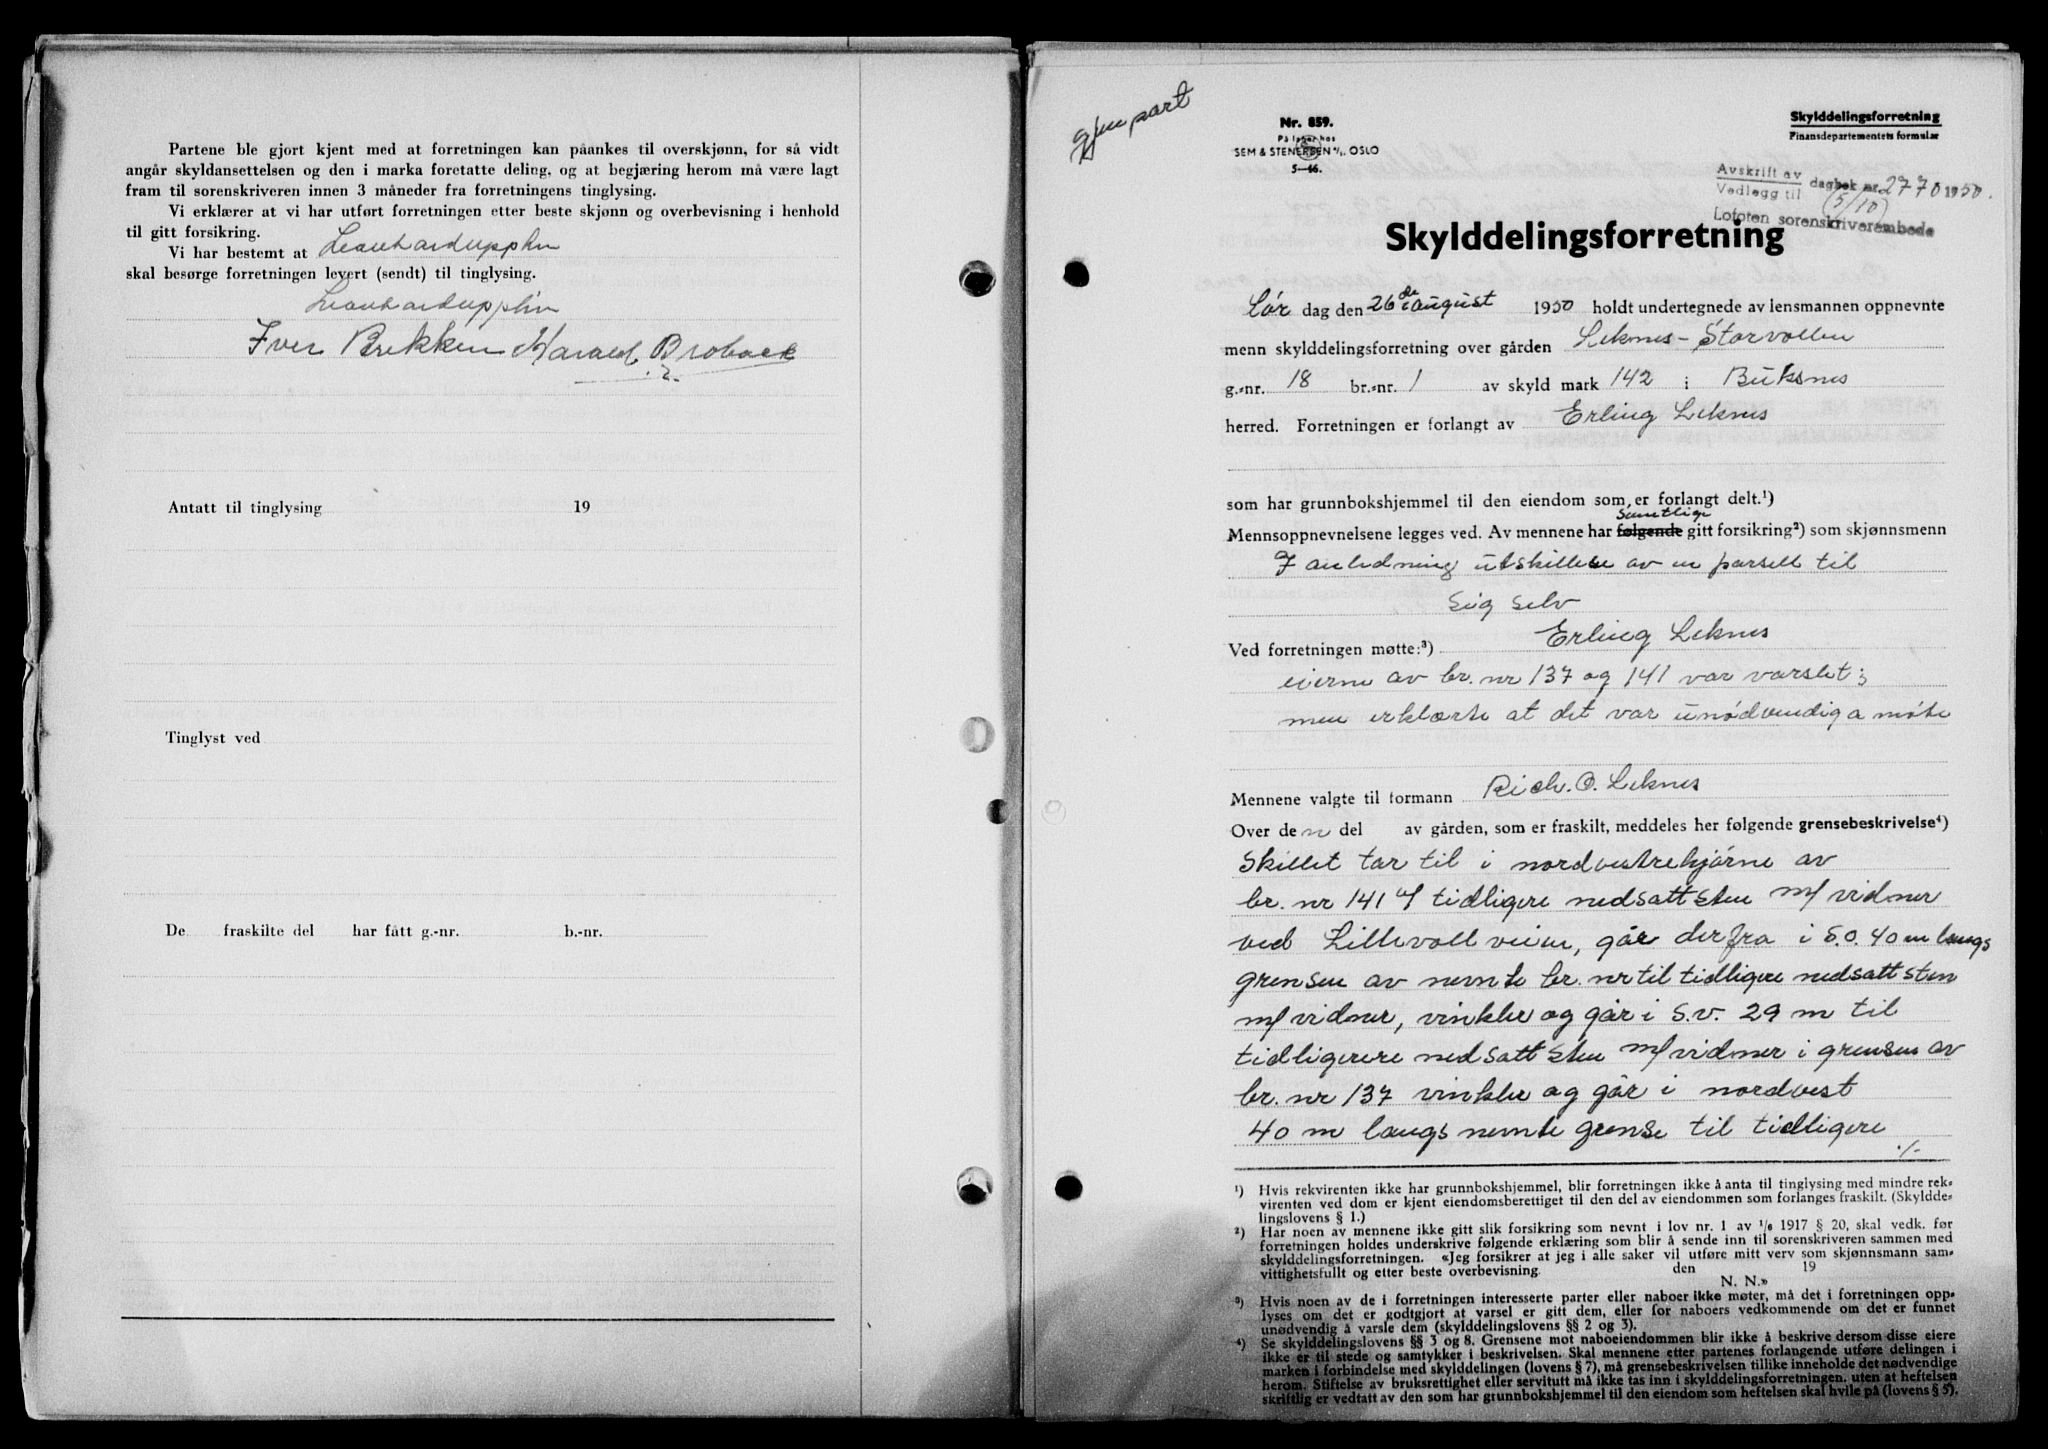 Partene ble gjort kjent med at forretningen kan påankes til overskjønn, for så vidt
angår skyldansettelsen og den i marka foretatte deling, og at begjæring herom må være lagt
fram til sorenskriveren innen 3 måneder fra forretningens tinglysing.
Vi erklærer at vi har utført forretningen etter beste skjønn og overbevisning i henhold
til gitt forsikring.
Vi har bestemt at
skal besørge forretningen levert (sendt) til tinglysing.
Iver Brekken Harald Broback
Antatt til tinglysing 19
Tinglyst ved
De fraskilte del har fått g.-nr. b.-nr.
Gjenpart
Nr. 859.
På lager hos
SEM & STENERSEN A/S, OSLO
5—46.
Skylddelingsforretning
Finansdepartementets formular
Avskrift av
Vedlegg til dagbok nr. 2770 1950.
(5/10)
Lofoten sorenskriverembede
Skylddelingsforretning
Lør dag den 26de august 1950 holdt undertegnede av lensmannen oppnevnte
menn skylddelingsforretning over gården Leknes - Storvollen
g.-nr. 18 br.-nr. 1 av skyld mark 142 i Buksnes
herred. Forretningen er forlangt av Erling Leknes
som har grunnbokshjemmel til den eiendom som er forlangt delt.¹)
samtlige
Mennsoppnevnelsene legges ved. Av mennene har følgende gitt forsikring²) som skjønnsmenn
I anledning utskillelse av en parsell til
sig selv
Ved forretningen møtte:³) Erling Leknes
eierne av br. nr 137 og 141 var varslet;
men erklærte at det var unødvendig a møte
Mennene valgte til formann Rich. O. Leknes
Over den del av gården, som er fraskilt, meddeles her følgende grensebeskrivelse⁴)
Skillet tar til i nordvestrehjørne av
br. nr 141 i tidligere nedsatt sten m/ vidner
ved Lillevollveien, går derfra i S.O. 40 m langs
grensen av nevnte br. nr til tidligere nedsatt sten
m/ vidner, vinkler og går i S.V. 29 m til
tidligerere nedsatt sten m/ vidner i grensen av
br. nr 137 vinkler og går i nordvest
40 m langs nevnte grense til tidligere
./.
¹) Hvis rekvirenten ikke har grunnbokshjemmel, blir forretningen ikke å anta til tinglysing med mindre rek-
virenten ved dom er kjent eiendomsberettiget til den del av eiendommen som forlanges fraskilt. (Skyldde-
lingslovens § 1.)
²) Har noen av mennene ikke gitt slik forsikring som nevnt i lov nr. 1 av 1/6 1917 § 20, skal vedk. før
forretningen holdes underskrive følgende erklæring som blir å sende inn til sorenskriveren sammen med
skylddelingsforretningen. «Jeg forsikrer at jeg i alle saker vil utføre mitt verv som skjønnsmann sam-
vittighetsfullt og etter beste overbevisning. den 19
N. N.»
³) Hvis noen av de i forretningen interesserte parter eller naboer ikke møter, må det i forretningen opp-
lyses om det er godtgjort at varsel er gitt dem, eller for naboers vedkommende om det er funnet
unødvendig å varsle dem (skylddelingslovens §§ 2 og 3).
⁴) Se skylddelingslovens §§ 3 og 8. Grensene mot naboeiendommen blir ikke å beskrive dersom disse eiere
ikke er til stede og samtykker i beskrivelsen. Skal mennene etter partenes forlangende utføre delingen i
marken i forbindelse med skylddelingen (lovens § 7), må grensebeskrivelsen tillike inneholde det nødvendige
herom. Stiftelse av bruksrettighet eller servitutt må ikke tas inn i skylddelingsforretningen, uten at heftelsen
skriftlig er vedtatt av den som har grunnbokshjemmel til den eiendom som heftelsen skal hvile på (lovens § 5).